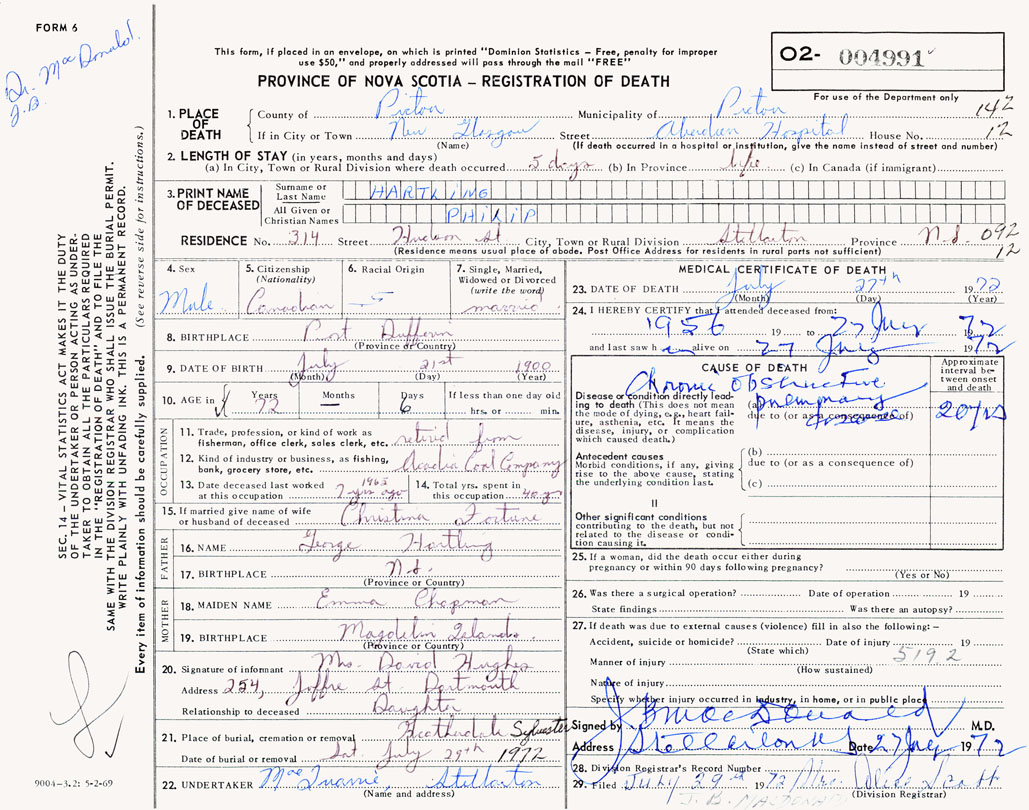 FORM 6
Dr. MacDonald.
J.B.
This form, if placed in an envelope, on which is printed "Dominion Statistics – Free, penalty for improper
use $50," and properly addressed will pass through the mail "FREE"
PROVINCE OF NOVA SCOTIA – REGISTRATION OF DEATH
O2- 004991
For use of the Department only
1. PLACE OF DEATH
County of Pictou Municipality of Pictou 142
If in City or Town New Glasgow Street Aberdeen Hospital House No. 12
(Name) (If death occurred in a hospital or institution, give the name instead of street and number)
2. LENGTH OF STAY (in years, months and days)
(a) In City, Town or Rural Division where death occurred 5 days (b) In Province Life (c) In Canada (if immigrant)
3. PRINT NAME OF DECEASED
Surname or Last Name HARTLING
All Given or Christian Names PHILIP
RESIDENCE No. 314 Street Hudson St City, Town or Rural Division Stellarton Province N.S. 092
(Residence means usual place of abode. Post Office Address for residents in rural parts not sufficient) 12
4. Sex Male
5. Citizenship (Nationality) Canadian
6. Racial Origin
7. Single, Married, Widowed or Divorced (write the word) married
8. BIRTHPLACE Port Dufferin
(Province or Country)
9. DATE OF BIRTH July 21st 1900
(Month) (Day) (Year)
10. AGE in Years 72 Months – Days 6 If less than one day old
hrs. or min.
OCCUPATION
11. Trade, profession, or kind of work as fisherman, office clerk, sales clerk, etc. retired from
12. Kind of industry or business, as fishing, bank, grocery store, etc. Acadia Coal Company
13. Date deceased last worked at this occupation 1965 7 yrs ago
14. Total yrs. spent in this occupation 40
15. If married give name of wife or husband of deceased Christina Fortune
FATHER
16. NAME George Hartling
17. BIRTHPLACE N.S.
(Province or Country)
MOTHER
18. MAIDEN NAME Emma Chapman
19. BIRTHPLACE Magdelin Islands
(Province or Country)
20. Signature of informant Mrs. David Hughes
Address 254, Joffre St. Dartmouth
Relationship to deceased Daughter
21. Place of burial, cremation or removal Heatherdale Sylvester
Date of burial or removal Sat July 29th 1972
22. UNDERTAKER Stellarton
(Name and address)
MEDICAL CERTIFICATE OF DEATH
23. DATE OF DEATH July 27th 1972
(Month) (Day) (Year)
24. I HEREBY CERTIFY that I attended deceased from:
1956 19 to 27 July 1972
and last saw h im alive on 27 July 1972
CAUSE OF DEATH
Approximate interval between onset and death
Disease or condition directly leading to death (This does not mean the mode of dying, e.g., heart failure, asthenia, etc. It means the disease, injury, or complication which caused death.)
Chronic obstructive
(a) pulmonary
due to (or as a consequence of) disease 20 yrs
Antecedent causes
Morbid conditions, if any, giving rise to the above cause, stating the underlying condition last.
(b)
due to (or as a consequence of)
(c)
II
Other significant conditions contributing to the death, but not related to the disease or condition causing it.
25. If a woman, did the death occur either during
pregnancy or within 90 days following pregnancy?
(Yes or No)
26. Was there a surgical operation? Date of operation 19
State findings Was there an autopsy?
27. If death was due to external causes (violence) fill in also the following: –
Accident, suicide or homicide? Date of injury 19
(State which) 519.2
Manner of injury
(How sustained)
Nature of injury
Specify whether injury occurred in industry, in home, or in public place
Signed by J B MacDonald M.D.
Address Stellarton NS Date 27 July 1972
28. Division Registrar's Record Number
29. Filed July 29th 1972 Mrs. Alice
J. B. MACDONALD (Division Registrar)
SEC. 14 – VITAL STATISTICS ACT MAKES IT THE DUTY
OF THE UNDERTAKER OR PERSON ACTING AS UNDER-
TAKER TO OBTAIN ALL THE PARTICULARS REQUIRED
IN THE "REGISTRATION OF DEATH" AND TO FILE THE
SAME WITH THE DIVISION REGISTRAR WHO SHALL ISSUE THE BURIAL PERMIT.
WRITE PLAINLY WITH UNFADING INK. THIS IS A PERMANENT RECORD.
Every item of information should be carefully supplied. (See reverse side for instructions.)
9004-3.2: 5-2-69